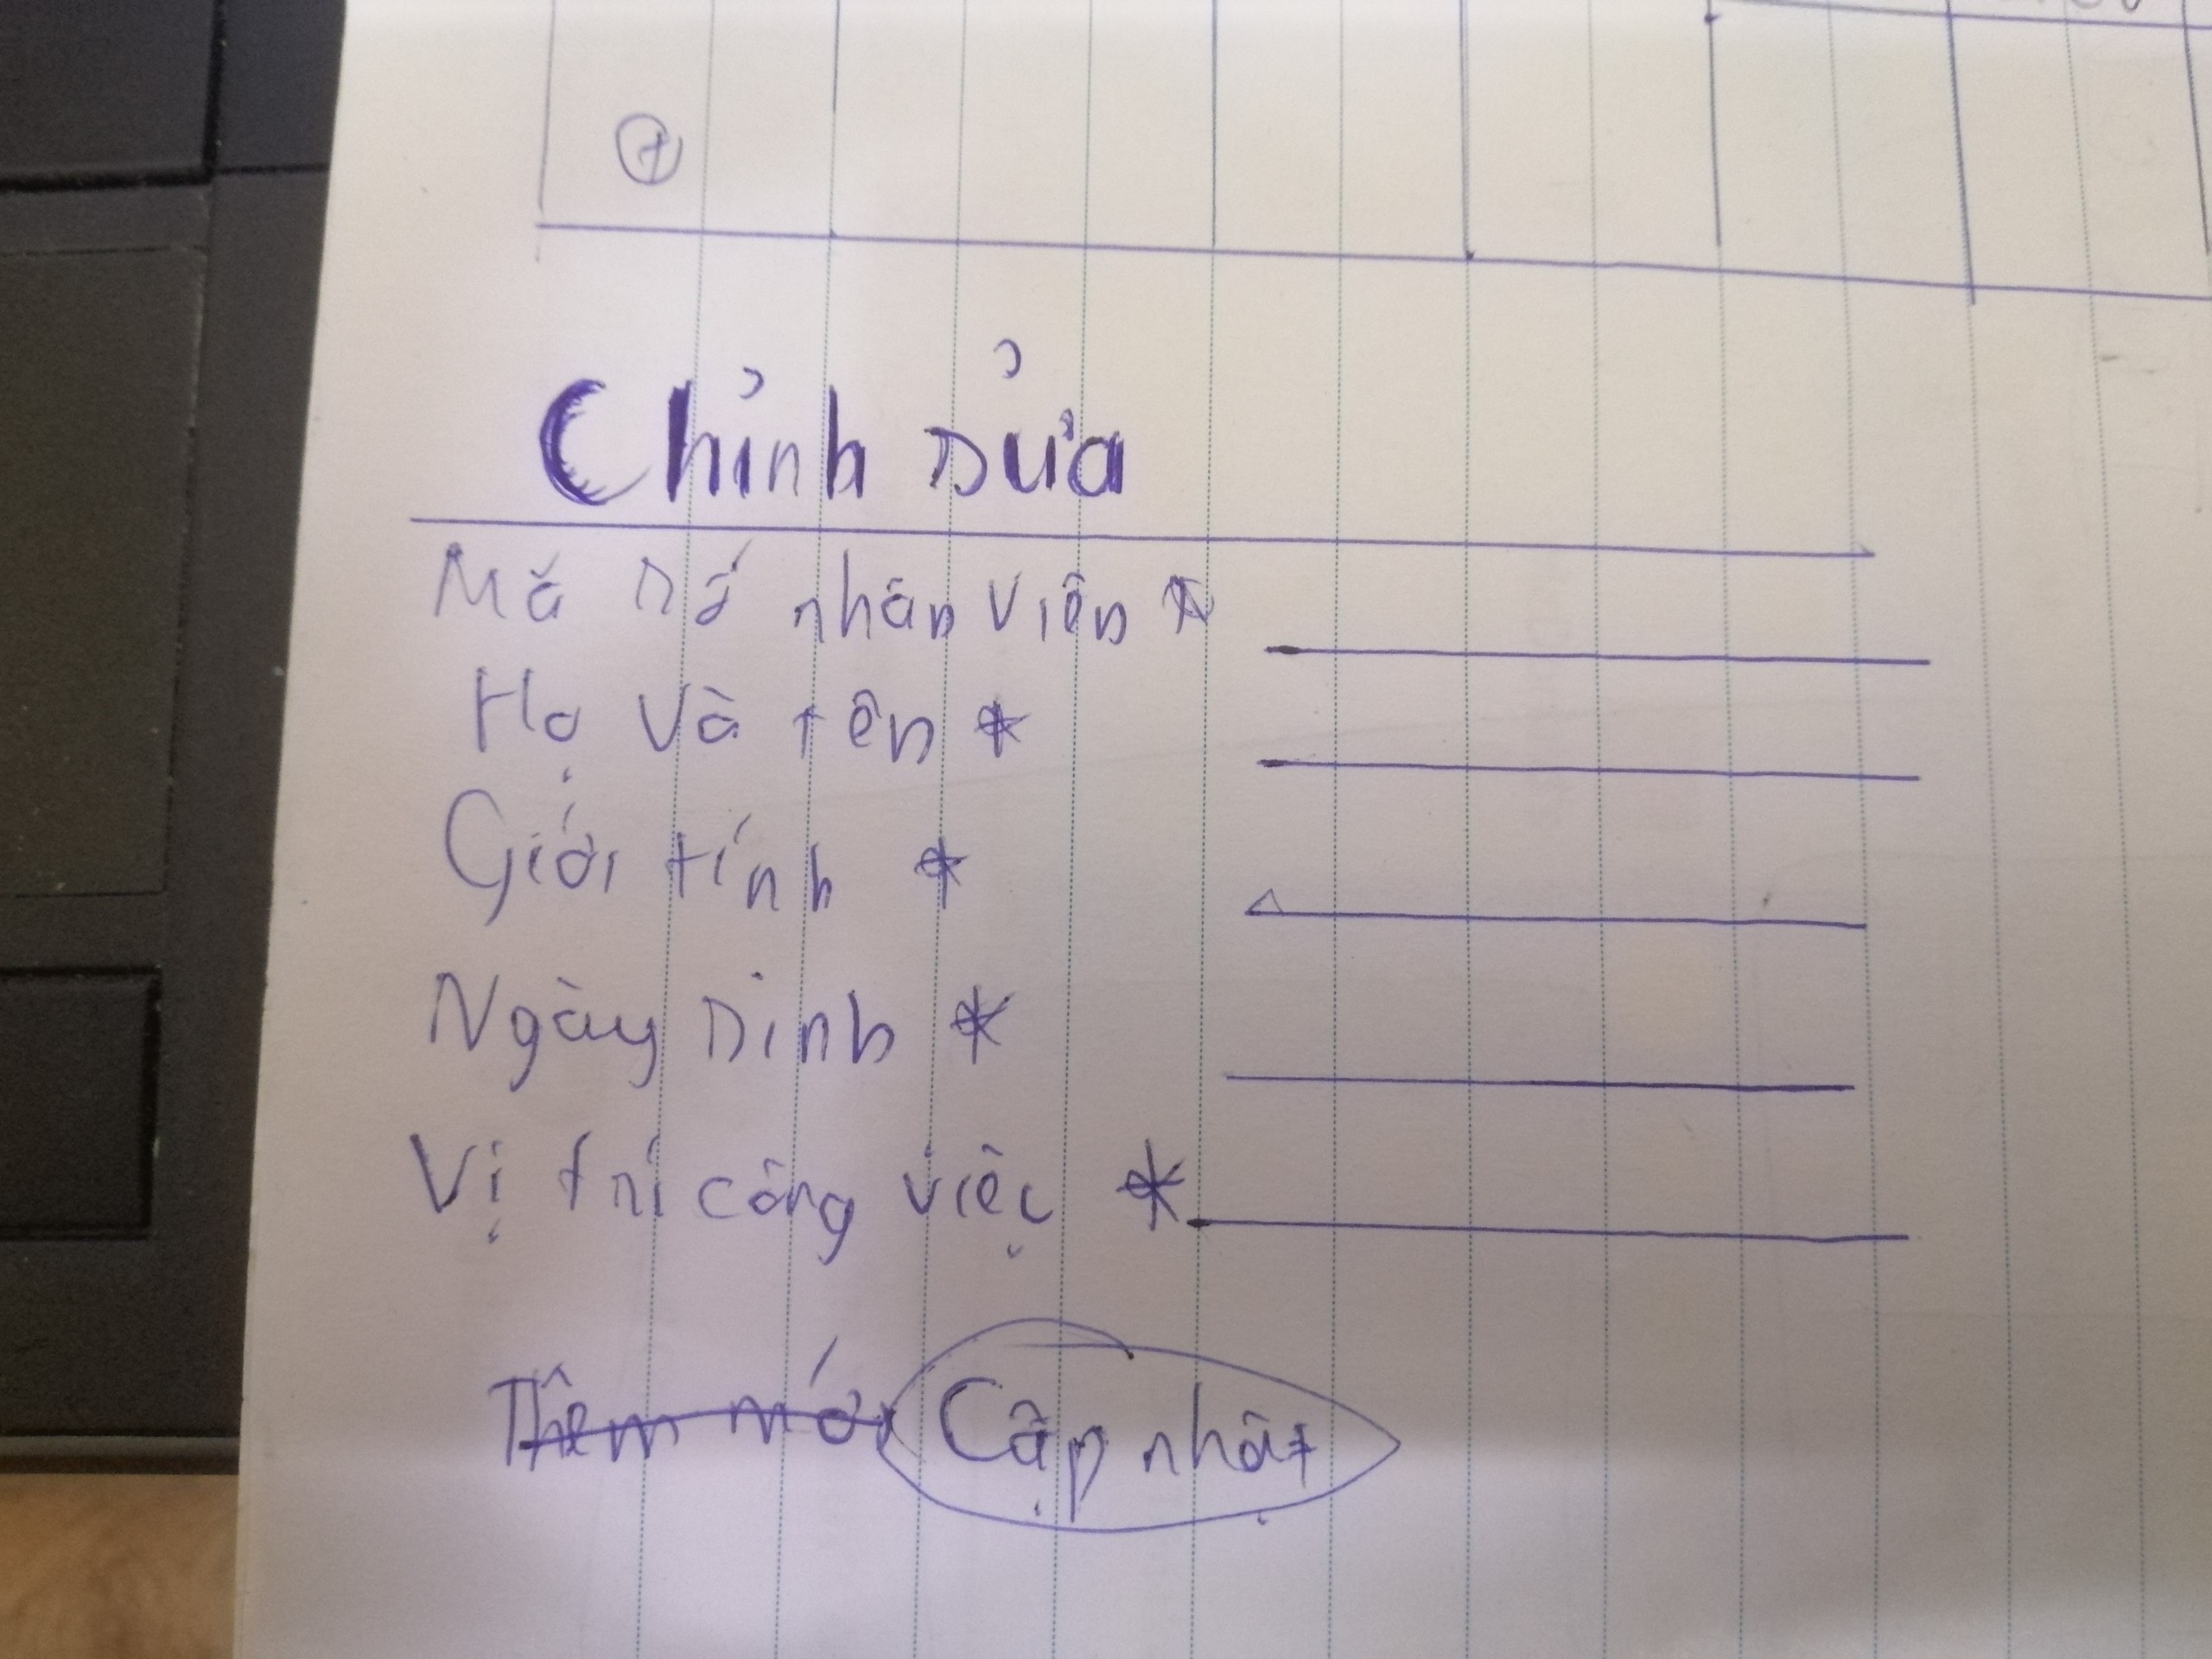 +
Chỉnh sửa
Mã số nhân viên *
Họ và tên *
Giới tính *
Ngày sinh *
Vị trí công việc *
Thêm mới Cập nhật